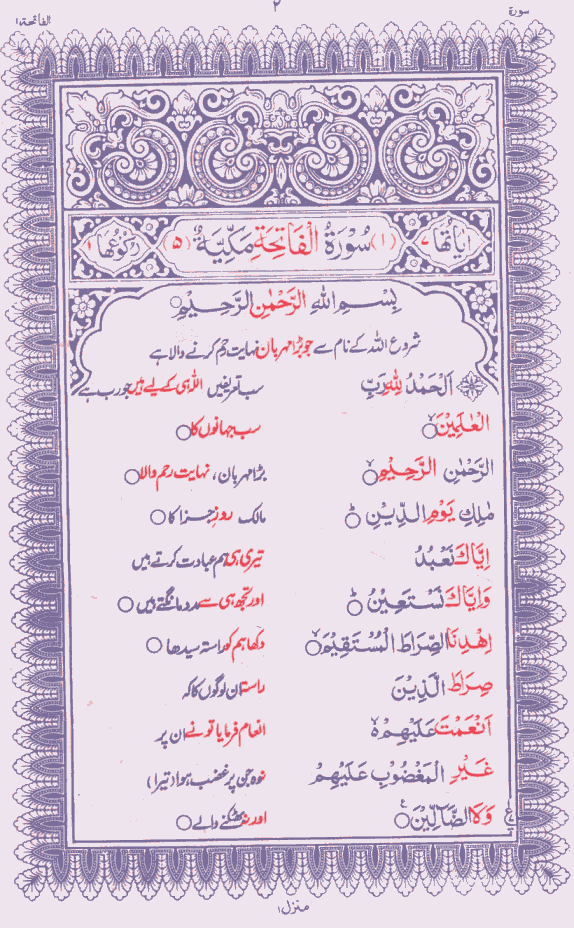 سورة ٢ الفاتحة ١
اٰیاتھا ٧ (١) سُوۡرَۃُ الۡفَاتِحَۃِ مَکِّیَّۃٌ (٥) رکوعھا ١
بِسۡمِ اللهِ الرَّحۡمٰنِ الرَّحِیۡمِ ○
شروع اللہ کے نام سے جو بڑا مہربان نہایت رحم کرنے والا ہے
اَلۡحَمۡدُ لِلّٰہِ رَبِّ سب تعریفیں اللہ ہی کے لیے ہیں جو رب ہے
الۡعٰلَمِیۡنَ ○ سب جہانوں کا ○
الرَّحۡمٰنِ الرَّحِیۡمِ ○ بڑا مہربان، نہایت رحم والا ○
مٰلِکِ یَوۡمِ الدِّیۡنِ ○ مالک روزِ جزا کا ○
اِیَّاکَ نَعۡبُدُ تیری ہی ہم عبادت کرتے ہیں
وَاِیَّاکَ نَسۡتَعِیۡنُ ○ اور تجھ ہی سے مدد مانگتے ہیں ○
اِھۡدِنَا الصِّرَاطَ الۡمُسۡتَقِیۡمَ ○ دکھا ہم کو راستہ سیدھا ○
صِرَاطَ الَّذِیۡنَ راستہ ان لوگوں کا کہ
اَنۡعَمۡتَ عَلَیۡھِمۡ انعام فرمایا تو نے ان پر
غَیۡرِ الۡمَغۡضُوۡبِ عَلَیۡھِمۡ نہ وہ جن پر غضب ہوا (تیرا)
وَلَا الضَّآلِّیۡنَ ○ اور نہ بھٹکنے والے ○
منزل ١